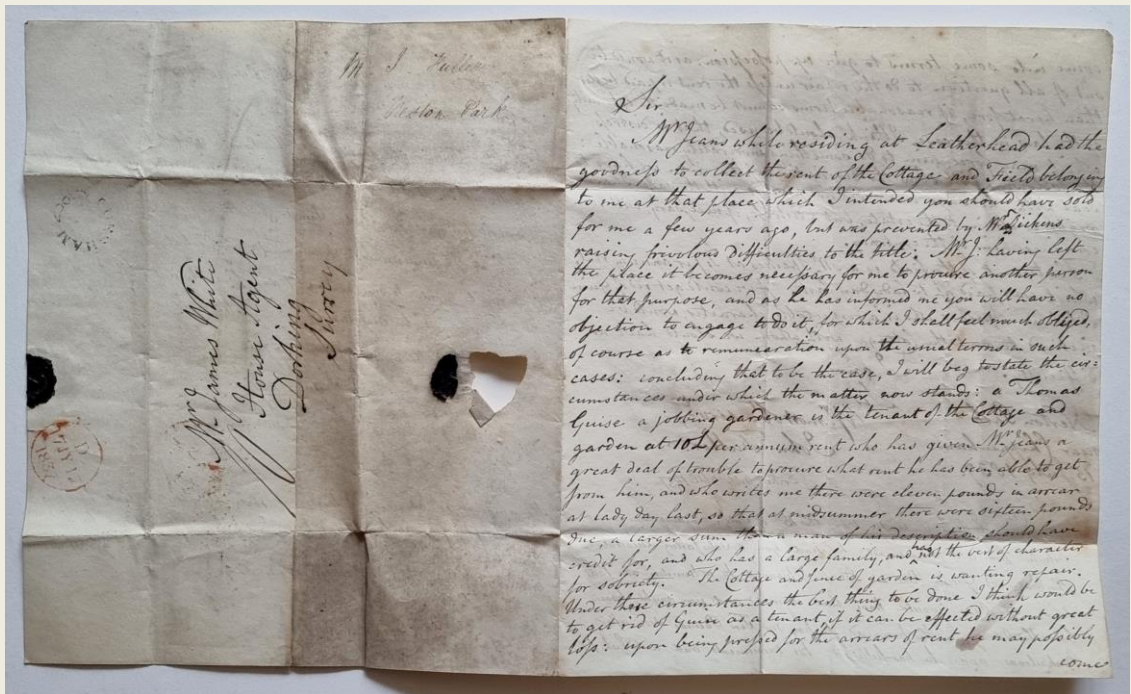 Sir
Mr. Jeans while residing at Leatherhead had the
goodness to collect the rent of the Cottage and Field belonging
to me at that place which I intended you should have sold
for me a few years ago, but was prevented by Mr. Dickens
raising frivolous difficulties to the title. Mr. J: having left
the place it becomes necessary for me to procure another person
for that purpose, and as he has informed me you will have no
objection to engage to do it, for which I shall feel much obliged,
of course as to remuneration upon the usual terms in such
cases: concluding that to be the case, I will beg to state the cir=
cumstances under which the matter now stands: a Thomas
Guise a jobbing gardener is the tenant of the Cottage and
garden at 10£ per annum rent who has given Mr. Jeans a
great deal of trouble to procure what rent he has been able to get
from him, and who writes me there were eleven pounds in arrear
at lady day last, so that at midsummer there were sixteen pounds
due, a larger sum than a man of his description should have
credit for, and who has a large family, and has not the best of character
for sobriety. The Cottage and fence of garden is wanting repair.
Under these circumstances the best thing to be done I think would be
to get rid of Guise as a tenant, if it can be effected without great
loss: upon being pressed for the arrears of rent he may possibly
come
Mr. James White
House Agent
Dorking
Surrey
Park